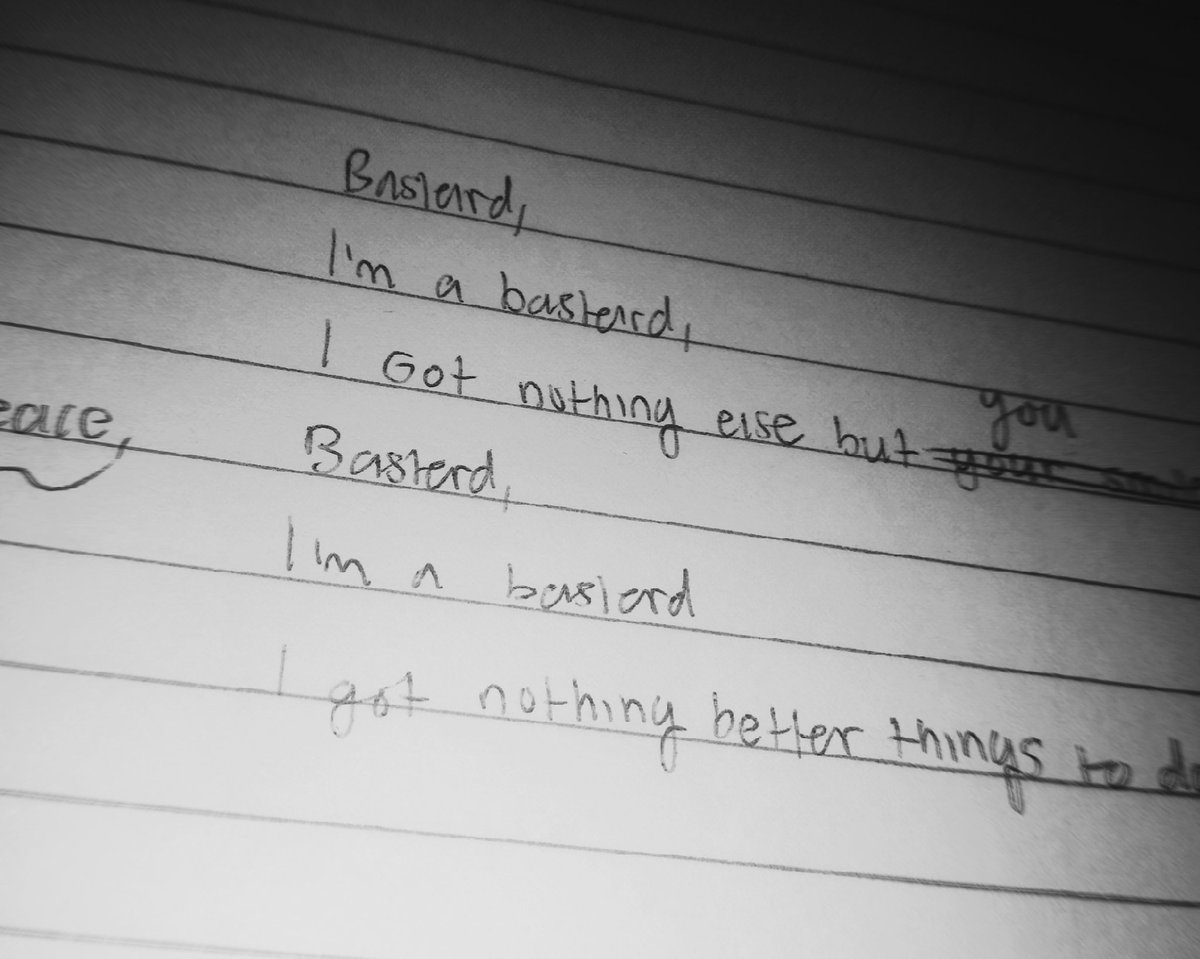 Bastard,
I'm a basterd,
I Got nothing else but you
Basterd,
I'm a bastard
I got nothing better things to do